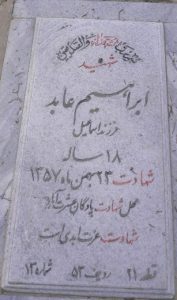 شهید
ابراهیم عابد
فرزند اسماعیل
۱۸ ساله
شهادت ۲۳ بهمن ماه ۱۳۵۷
محل شهادت پادگان عشرت آباد
شهادت عزت ابدی است
قطعه ۲۱ ردیف ۵۳ شماره ۱۳